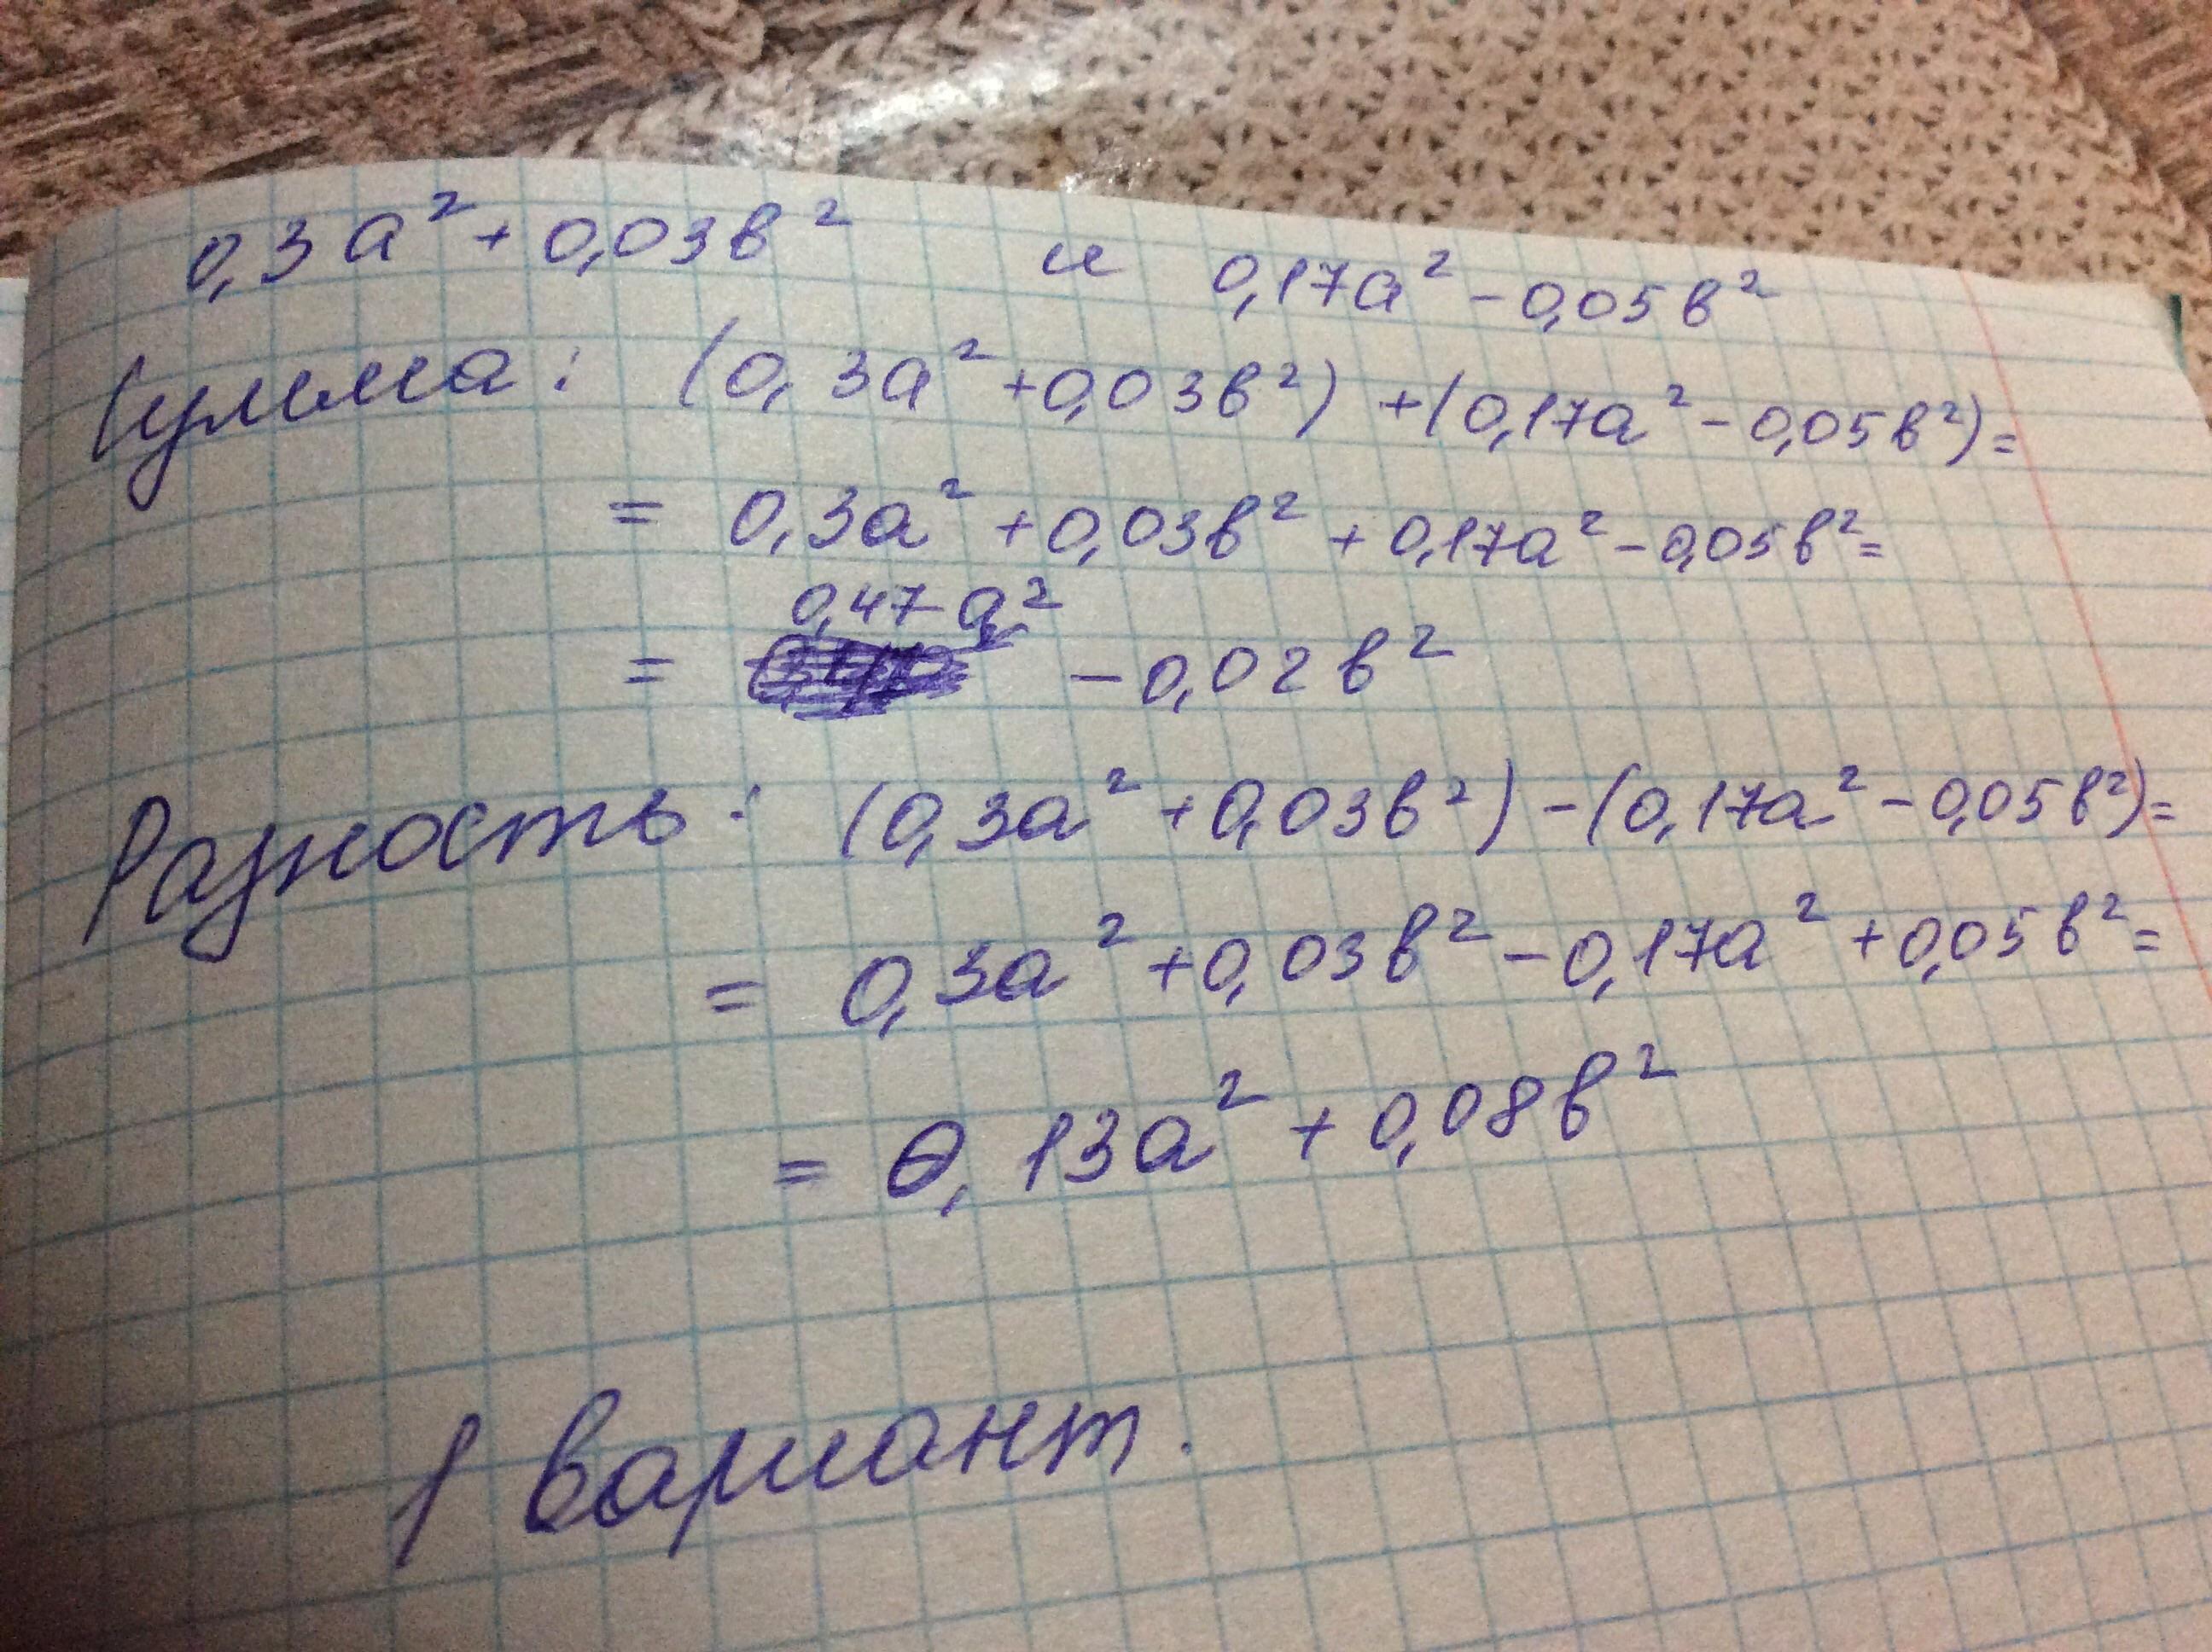 0,3a² + 0,03b² и 0,17a² - 0,05b²
Сумма: (0,3a² + 0,03b²) + (0,17a² - 0,05b²) =
= 0,3a² + 0,03b² + 0,17a² - 0,05b² =
0,47a²
= - 0,02b²
Разность: (0,3a² + 0,03b²) - (0,17a² - 0,05b²) =
= 0,3a² + 0,03b² - 0,17a² + 0,05b² =
= 0,13a² + 0,08b²
1 вариант.